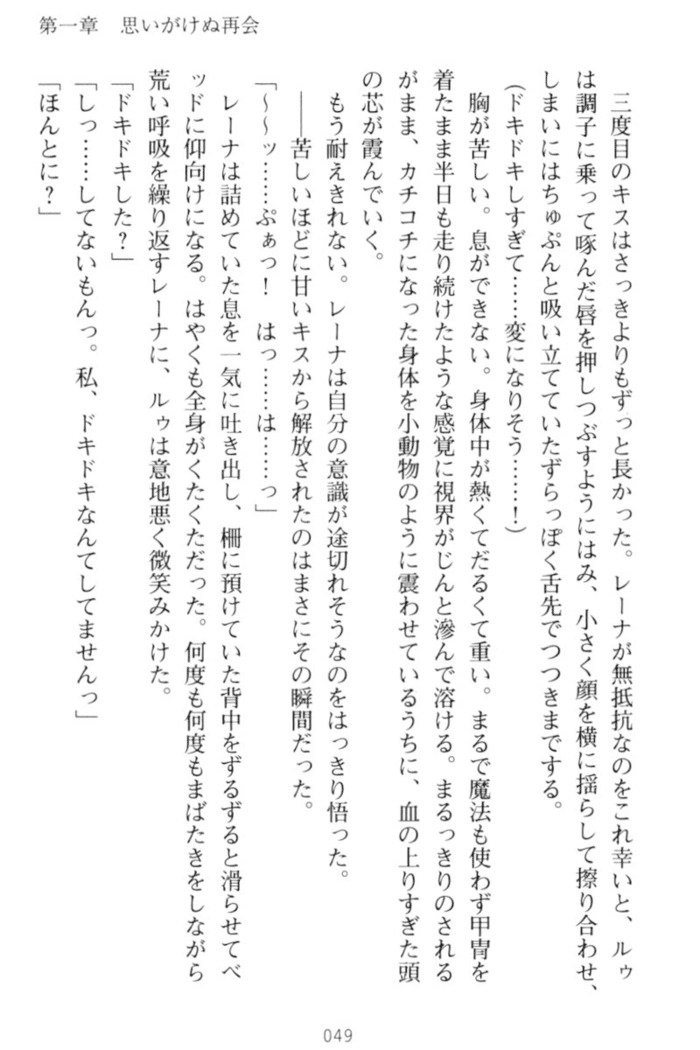 第一章　思いがけぬ再会
　三度目のキスはさっきよりもずっと長かった。レーナが無抵抗なのをこれ幸いと、ルゥ
は調子に乗って啄んだ唇を押しつぶすようにはみ、小さく顔を横に揺らして擦り合わせ、
しまいにはちゅぷんと吸い立てていたずらっぽく舌先でつつきまでする。
（ドキドキしすぎて……変になりそう……！）
　胸が苦しい。息ができない。身体中が熱くてだるくて重い。まるで魔法も使わず甲冑を
着たまま半日も走り続けたような感覚に視界がじんと滲んで溶ける。まるっきりのされる
がまま、カチコチになった身体を小動物のように震わせているうちに、血の上りすぎた頭
の芯が霞んでいく。
　もう耐えきれない。レーナは自分の意識が途切れそうなのをはっきり悟った。
　――苦しいほどに甘いキスから解放されたのはまさにその瞬間だった。
「～～ッ……ぷぁっ！　はっ……は……っ」
　レーナは詰めていた息を一気に吐き出し、柵に預けていた背中をずるずると滑らせてベ
ッドに仰向けになる。はやくも全身がくたくただった。何度も何度もまばたきをしながら
荒い呼吸を繰り返すレーナに、ルゥは意地悪く微笑みかけた。
「ドキドキした？」
「しっ……してないもんっ。私、ドキドキなんてしてませんっ」
「ほんとに？」
049